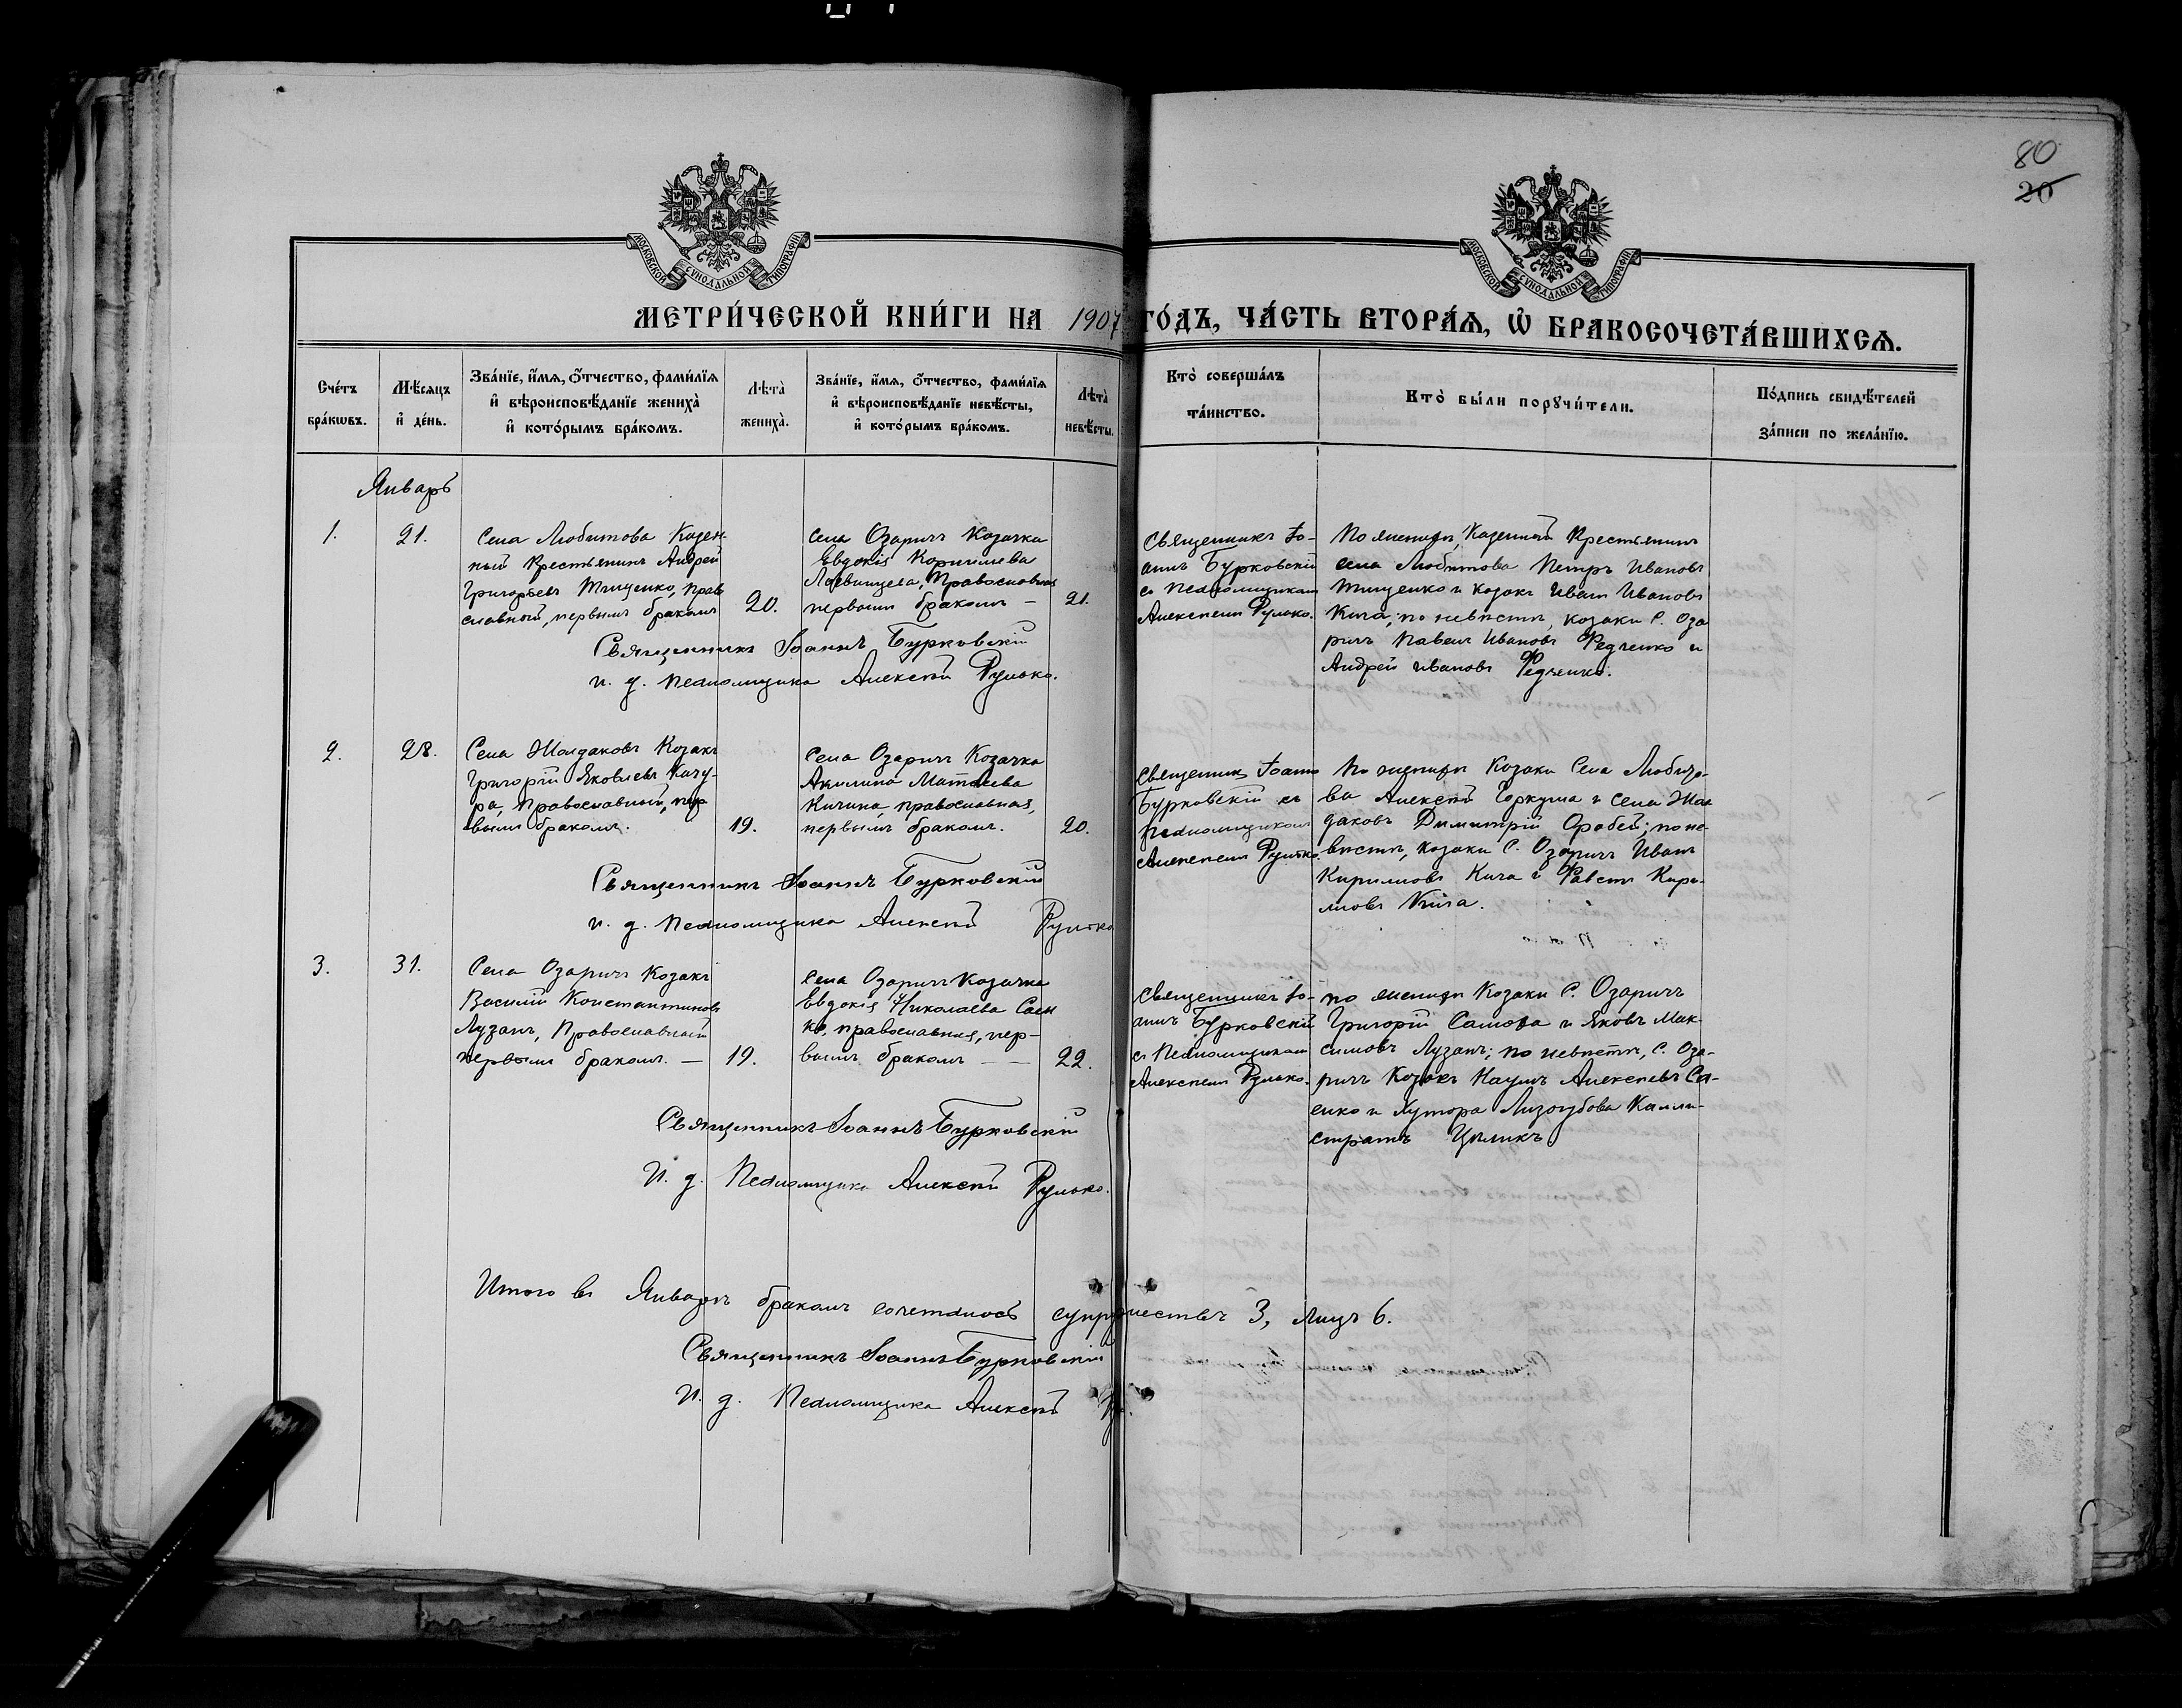 80
20
МОСКОВСКОЙ СУНОДАЛЬНОЙ ТИПОГРАФІИ
МОСКОВСКОЙ СУНОДАЛЬНОЙ ТИПОГРАФІИ
МЕТРИ́ЧЕСКОЙ КНИ́ГИ НА 1907 ГО́ДЪ, ЧА́СТЬ ВТОРА́Ѧ, Ѡ҆ БРАКОСОЧЕТА́ВШИХСѦ.
Сче́тъ
бра́кωвъ.
Мѣ́сяцъ
и҆ де́нь.
Зва́нїе, и҆́мѧ, ѻ҆́тчество, фами́лїѧ
и҆ вѣроисповѣ́данїе жениха̀
и҆ кото́рымъ бра́комъ.
Лѣта̀
жениха̀.
Зва́нїе, и҆́мѧ, ѻ҆́тчество, фами́лїѧ
и҆ вѣроисповѣ́данїе невѣ́сты,
и҆ кото́рымъ бра́комъ.
Лѣта̀
невѣ́сты.
Кто̀ соверша́лъ
та́инство.
Кто̀ бы́ли порꙋчи́тели.
По́дпись свидѣ́телей
за́писи по жела́нїю.
Январь
1.
21.
Села Любитова Казен-
ный Крестьянинъ Андрей
Григорьевъ Тищенко, прав
славный, первымъ бракомъ
20.
Села Озаричъ Козачка
Евдокія Корнилиева
Православная
первымъ бракомъ —
21.
Священникъ Іо-
аннъ Бурковскій
съ Псаломщикомъ
Алексѣемъ Рулько.
По женихѣ, Казенный Крестьянинъ
села Любитова Петръ Ивановъ
Тищенко и козакъ Иванъ Ивановъ
Кича; по невѣстѣ, козаки С. Оза
ричъ Павелъ Ивановъ Федченко и
Андрей Ивановъ Федченко.
Священникъ Іоаннъ Бурковскій
и. д. псаломщика Алексѣй Рулько.
2.
28.
Села Жолдаковъ Козакъ
Григорій Яковлевъ Качу-
ра, православный, пер
вымъ бракомъ.
19.
Села Озаричъ Козачка
Акилина Матѳіева
Кичина, православная,
первымъ бракомъ.
20.
Священникъ Іоаннъ
Бурковскій съ
псаломщикомъ
Алексѣемъ Рулько.
По женихѣ Козаки Села Любито-
ва Алексѣй Горкуша и села Жол
даковъ Димитрій Оробей; по не-
вѣстѣ, козаки С. Озаричъ Иванъ
Кириловъ Кича и Кири-
ловъ Кича.
Священникъ Іоаннъ Бурковскій
и. д. псаломщика Алексѣй Рулько
3.
31.
Села Озаричъ Козакъ
Василій Константиновъ
Лузанъ, Православный
первымъ бракомъ. —
19.
Села Озаричъ Козачка
Евдокія Николаева Саен
ко, православная, пер-
вымъ бракомъ —
22.
Священникъ Іо-
аннъ Бурковскій
съ Псаломщикомъ
Алексѣемъ Рулько.
по женихѣ Козаки С. Озаричъ
Григорій Самоха и Яковъ Мак-
симовъ Лузанъ; по невѣстѣ, С. Оза-
ричъ Козакъ Наумъ Алексѣевъ Са-
енко и Хутора Лизогубова Калли-
стратъ Цѣликъ
Священникъ Іоаннъ Бурковскій
И. д. Псаломщика Алексѣй Рулько.
Итого въ Январѣ бракомъ сочеталось супружествъ 3, лицъ 6.
Священникъ Іоаннъ Бурковскій
И. д. Псаломщика Алексѣй